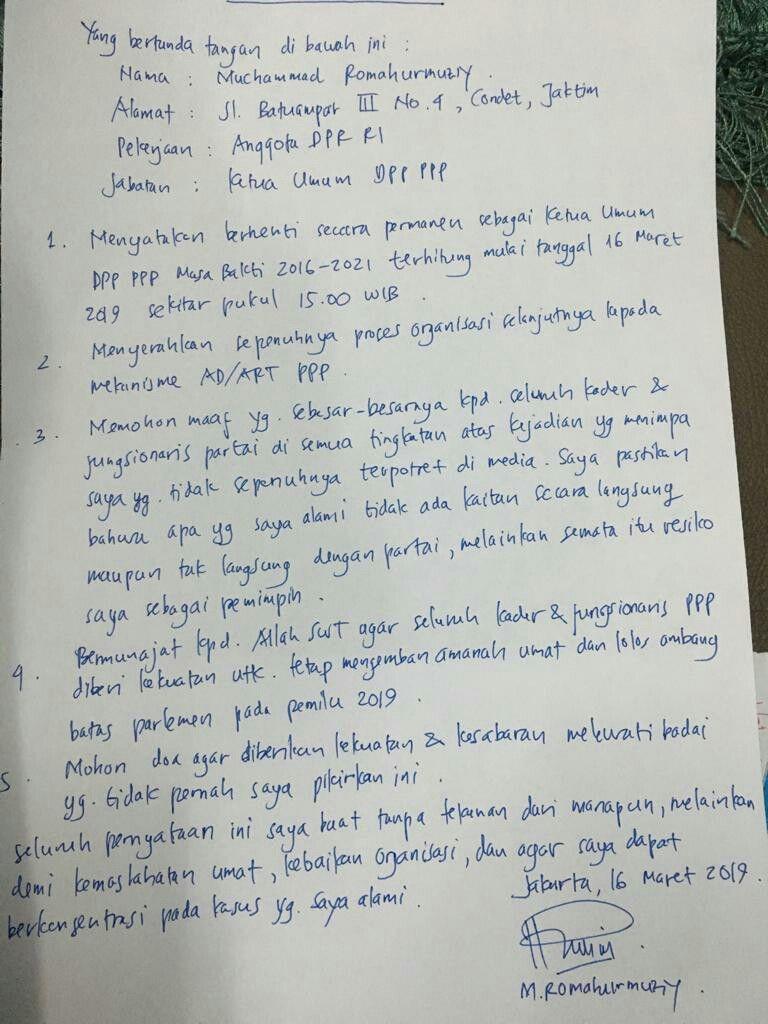 Yang bertanda tangan di bawah ini :
Nama : Muchammad Romahurmuziy .
Alamat : Jl. Batuampar III No. 4, Condet, Jaktim
Pekerjaan : Anggota DPR RI
Jabatan : Ketua Umum DPP PPP
1. Menyatakan berhenti secara permanen sebagai Ketua Umum
DPP PPP Masa Bakti 2016-2021 terhitung mulai tanggal 16 Maret
2019 sekitar pukul 15.00 WIB .
2. Menyerahkan sepenuhnya proses organisasi selanjutnya kepada
mekanisme AD/ART PPP .
3. Memohon maaf yg. sebesar-besarnya kpd. seluruh kader &
fungsionaris partai di semua tingkatan atas kejadian yg menimpa
saya yg. tidak sepenuhnya terpotret di media. Saya pastikan
bahwa apa yg saya alami tidak ada kaitan secara langsung
maupun tak langsung dengan partai, melainkan semata itu resiko
saya sebagai pemimpin .
4. Bermunajat kpd. Allah SWT agar seluruh kader & fungsionaris PPP
diberi kekuatan utk. tetap mengemban amanah umat dan lolos ambang
batas parlemen pada pemilu 2019 .
5. Mohon doa agar diberikan kekuatan & kesabaran melewati badai
yg. tidak pernah saya pikirkan ini .
Seluruh pernyataan ini saya buat tanpa tekanan dari manapun, melainkan
demi kemaslahatan umat, kebaikan organisasi, dan agar saya dapat
berkonsentrasi pada kasus yg. saya alami .
Jakarta, 16 Maret 2019.
M. Romahurmuziy .